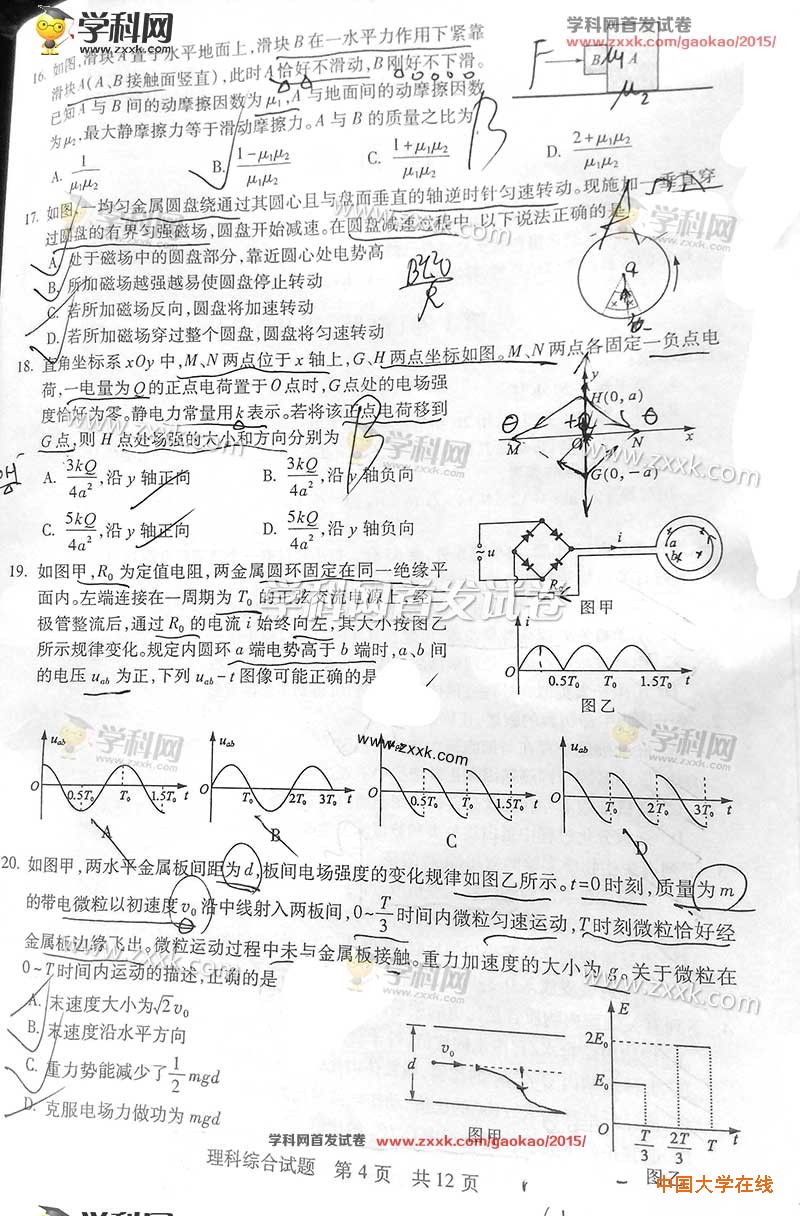 学科网 www.zxxk.com
学科网首发试卷
www.zxxk.com/gaokao/2015/
16. 如图,滑块A置于水平地面上,滑块B在一水平力作用下紧靠
滑块A(A、B接触面竖直),此时A恰好不滑动,B刚好不下滑。
已知A与B间的动摩擦因数为μ₁,A与地面间的动摩擦因数
为μ₂,最大静摩擦力等于滑动摩擦力。A与B的质量之比为
F B μ₁ A μ₂
A. 1/μ₁μ₂ B. (1-μ₁μ₂)/μ₁μ₂ C. (1+μ₁μ₂)/μ₁μ₂ D. (2+μ₁μ₂)/μ₁μ₂
B
17. 如图,一均匀金属圆盘绕通过其圆心且与盘面垂直的轴逆时针匀速转动。现施加一垂直穿
过圆盘的有界匀强磁场,圆盘开始减速。在圆盘减速过程中,以下说法正确的是
A. 处于磁场中的圆盘部分,靠近圆心处电势高
B. 所加磁场越强越易使圆盘停止转动
C. 若所加磁场反向,圆盘将加速转动
D. 若所加磁场穿过整个圆盘,圆盘将匀速转动
18. 直角坐标系xOy中,M、N两点位于x轴上,G、H两点坐标如图。M、N两点各固定一负点电
荷,一电量为Q的正点电荷置于O点时,G点处的电场强
度恰好为零。静电力常量用k表示。若将该正点电荷移到
G点,则H点处场强的大小和方向分别为
y H(0,a) M O N x G(0,-a)
A. 3kQ/4a²,沿y轴正向 B. 3kQ/4a²,沿y轴负向
C. 5kQ/4a²,沿y轴正向 D. 5kQ/4a²,沿y轴负向
19. 如图甲,R₀为定值电阻,两金属圆环固定在同一绝缘平
面内。左端连接在一周期为T₀的正弦交流电源上,经二
极管整流后,通过R₀的电流i始终向左,其大小按图乙
所示规律变化。规定内圆环a端电势高于b端时,a、b间
的电压u_ab为正,下列u_ab-t图像可能正确的是
~u i a b R₀
图甲
i O 0.5T₀ T₀ 1.5T₀ t
图乙
学科网首发试卷
www.zxxk.com
u_ab O 0.5T₀ T₀ 1.5T₀ t
A
u_ab O T₀ 2T₀ 3T₀ t
B
O 0.5T₀ T₀ 1.5T₀ t
C
u_ab O T₀ 2T₀ 3T₀ t
D
20. 如图甲,两水平金属板间距为d,板间电场强度的变化规律如图乙所示。t=0时刻,质量为m
的带电微粒以初速度v₀沿中线射入两板间,0~T/3时间内微粒匀速运动,T时刻微粒恰好经
金属板边缘飞出。微粒运动过程中未与金属板接触。重力加速度的大小为g。关于微粒在
0~T时间内运动的描述,正确的是
A. 末速度大小为√2v₀
B. 末速度沿水平方向
C. 重力势能减少了1/2 mgd
D. 克服电场力做功为mgd
d v₀
图甲
E 2E₀ E₀ O T/3 2T/3 T t
图乙
学科网首发试卷 www.zxxk.com/gaokao/2015/
理科综合试题 第4页 共12页
中国大学在线